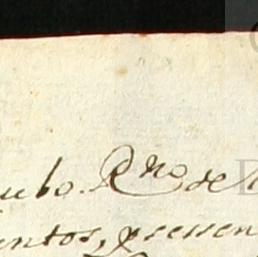 ubo. Rno de
intos, y sesen